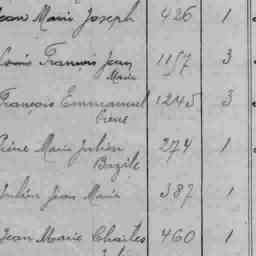 Jean Marie Joseph 426 1
Louis François Jean 1157 3
Marie
François Emmanuel 1245 3
Pierre
Marie Julien 274 1
Bazile
Julien Jean Marie 387 1
Jean Marie Charles 460 1